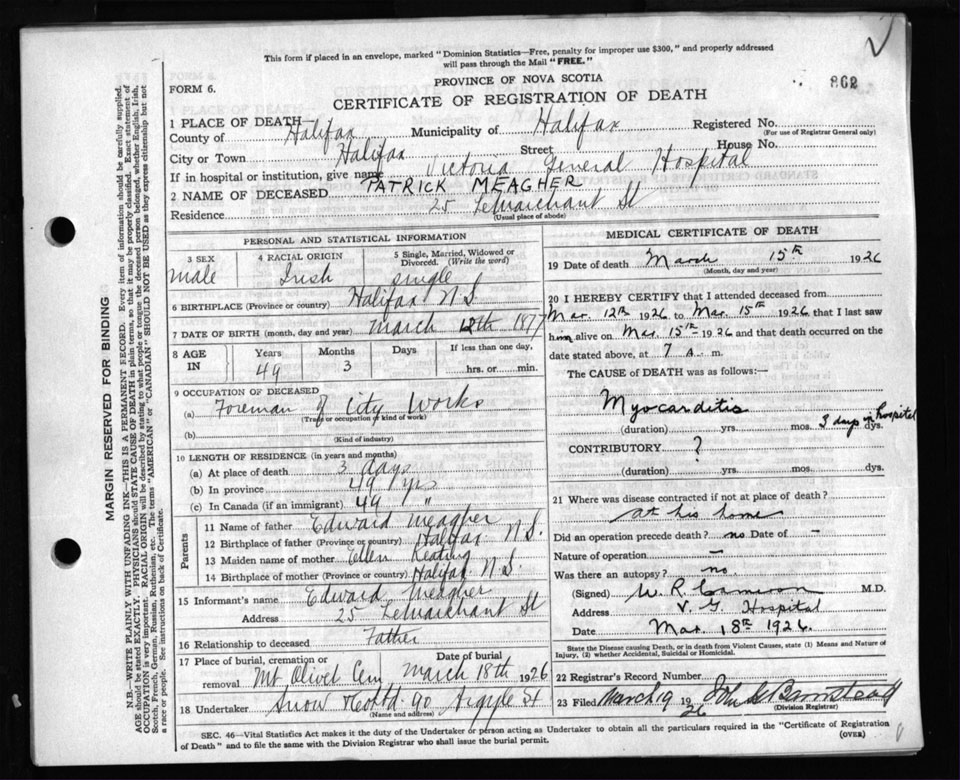 This form if placed in an envelope, marked "Dominion Statistics—Free, penalty for improper use $300," and properly addressed
will pass through the Mail "FREE."
PROVINCE OF NOVA SCOTIA
862
FORM 6.
CERTIFICATE OF REGISTRATION OF DEATH
1 PLACE OF DEATH—
County of Halifax Municipality of Halifax Registered No.
(For use of Registrar General only)
City or Town Halifax Street House No.
If in hospital or institution, give name Victoria General Hospital
2 NAME OF DECEASED PATRICK MEAGHER
Residence 25 LeMarchant St
(Usual place of abode)
PERSONAL AND STATISTICAL INFORMATION
3 SEX 4 RACIAL ORIGIN 5 Single, Married, Widowed or Divorced. (Write the word)
male Irish single
6 BIRTHPLACE (Province or country) Halifax N S.
7 DATE OF BIRTH (month, day and year) March 12th 1877
8 AGE IN Years Months Days If less than one day,
49 3 hrs. or min.
9 OCCUPATION OF DECEASED
(a) Foreman of City Works
(Trade or occupation or kind of work)
(b)
(Kind of industry)
10 LENGTH OF RESIDENCE (in years and months)
(a) At place of death 3 days
(b) In province 49 yrs
(c) In Canada (if an immigrant) 49 "
Parents
11 Name of father Edward Meagher
12 Birthplace of father (Province or country) Halifax N S.
13 Maiden name of mother Ellen Keating
14 Birthplace of mother (Province or country) Halifax N S.
15 Informant's name Edward Meagher
Address 25 LeMarchant St
16 Relationship to deceased Father
17 Place of burial, cremation or removal Date of burial
Mt Olivet Cem March 18th 1926
18 Undertaker Snow Co Ltd 90 Argyle St
(Name and address)
MEDICAL CERTIFICATE OF DEATH
19 Date of death March 15th 1926
(Month, day and year)
20 I HEREBY CERTIFY that I attended deceased from
Mar. 12th 1926 to Mar. 15th 1926 that I last saw
him alive on Mar. 15th 1926 and that death occurred on the
date stated above, at 7 a. m.
The CAUSE of DEATH was as follows:—
Myocarditis
(duration) yrs. mos. 3 days in hospital dys.
CONTRIBUTORY. ?
(duration) yrs. mos. dys.
21 Where was disease contracted if not at place of death?
at his home
Did an operation precede death? no Date of —
Nature of operation —
Was there an autopsy? no.
(Signed) W. R. M.D.
Address V. G. Hospital
Date Mar. 18th 1926.
State the Disease causing Death, or in death from Violent Causes, state (1) Means and Nature of
Injury, (2) whether Accidental, Suicidal or Homicidal.
22 Registrar's Record Number
23 Filed March 19 1926 John Barnstead
(Division Registrar)
SEC. 46—Vital Statistics Act makes it the duty of the Undertaker or person acting as Undertaker to obtain all the particulars required in the "Certificate of Registration
of Death" and to file the same with the Division Registrar who shall issue the burial permit.
(OVER)
MARGIN RESERVED FOR BINDING
N.B.—WRITE PLAINLY WITH UNFADING INK—THIS IS A PERMANENT RECORD. Every item of information should be carefully supplied.
AGE should be stated EXACTLY. PHYSICIANS should STATE CAUSE OF DEATH in plain terms, so that it may be properly classified. Exact statement of
OCCUPATION is very important. RACIAL ORIGIN will be described by stating to what people or tongue the deceased person belonged, whether English, Irish,
Scotch, French, German, Russian, Ruthenian, etc. The terms "AMERICAN" or "CANADIAN" SHOULD NOT BE USED as they express citizenship but not
a race or people. See instructions on back of Certificate.